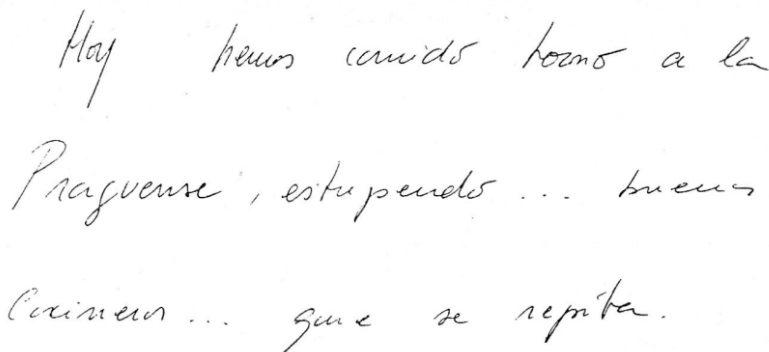 Hoy hemos comido horno a la
Praguense, estupendo... buenos
Cocineros... que se repita.